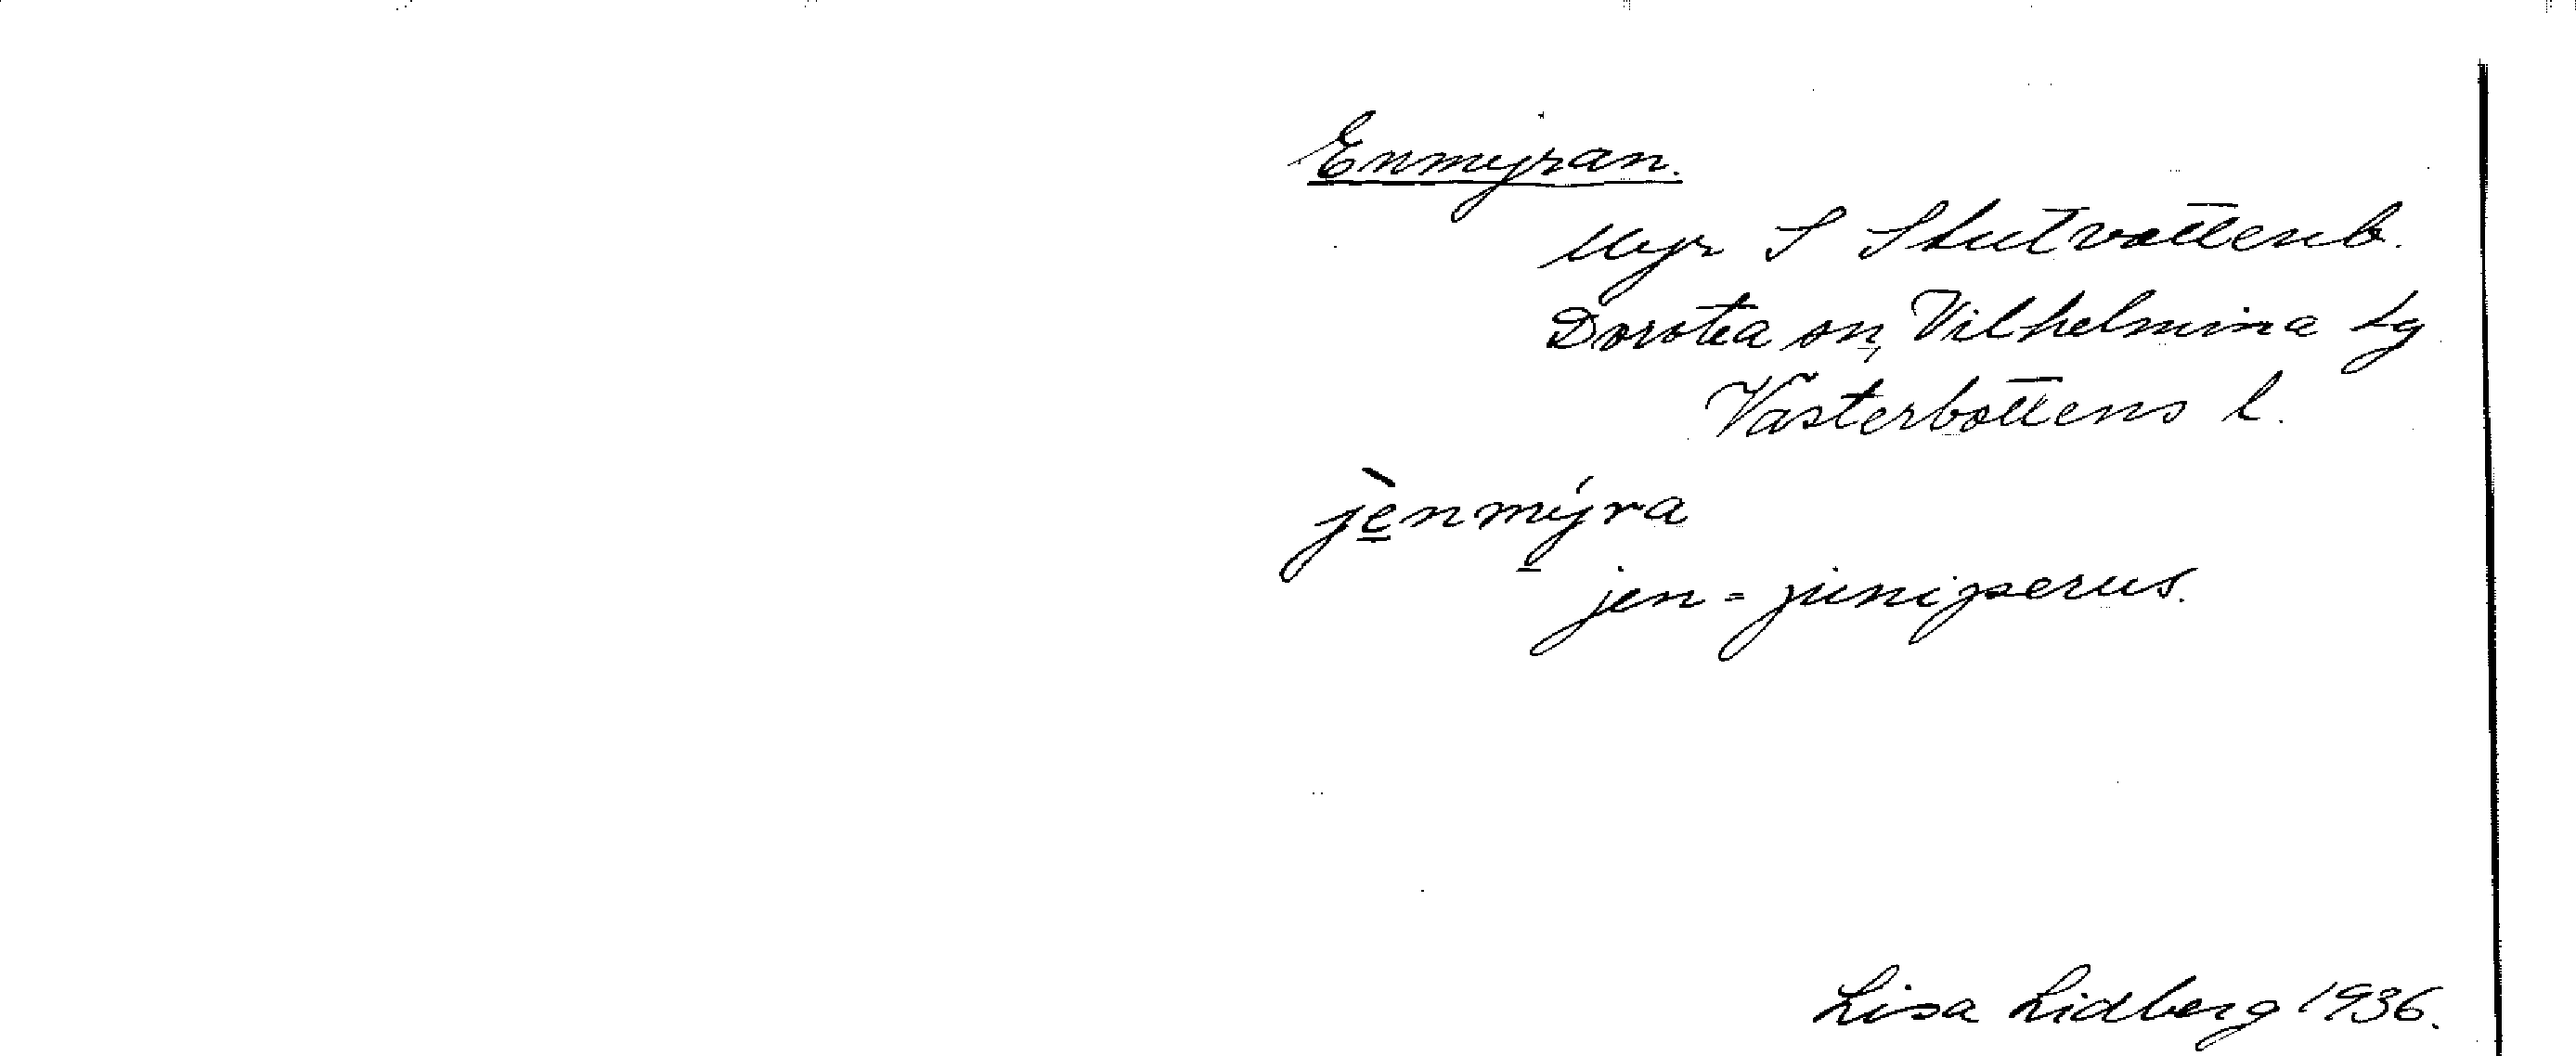 Enmyran.
Myr S Stutvattenb.
Dorotea sn, Vilhelmina tg
Västerbottens l.
jènmýra
jen = juniperus.
Lisa Lidberg 1936.